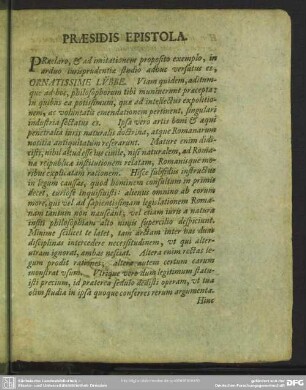 PRÆSIDIS EPISTOLA.
PRæclaro, & ad imitationem proposito exemplo, in
arduo jurisprudentiæ studio adhuc versatus es,
ORNATISSIME LÜBBE. Viam quidem, aditum-
que ad hoc, philosophorum tibi muniverunt præcepta;
in quibus ea potissimum, quæ ad intellectus expolitio-
nem, ac voluntatis emendationem pertinent, singulari
industria sectatus es. Ipsa vero artis boni & æqui
penetralia juris naturalis doctrina, atque Romanarum
notitia antiquitatum reserarunt. Mature enim didi-
cisti, nihil aliud esse hoc civile, nisi naturalem, ad Roma-
næ reipublicæ institutionem relatam, Romanisque mo-
ribus explicatam rationem. Hisce subsidiis instructus
in legum causas, quod hominem consultum in primis
decet, curiose inquisivisti: alienus omnino ab eorum
more, qui vel ad sapientissimam legislationem Roma-
nam tantum non nauseant, vel etiam jura a natura
insiti philosophiam alto nimis supercilio despiciunt.
Minime scilicet te latet, tam arctam inter has duas
disciplinas intercedere necessitudinem, ut qui alter-
utram ignorat, ambas nesciat. Altera enim rectas le-
gum prodit rationes; altera autem certum earum
monstrat usum. Utrique vero dum legitimum statu-
isti precium, id præterea sedulo dedisti operam, ut tua
olim studia in ipsa quoque conferres rerum argumenta.
Hinc